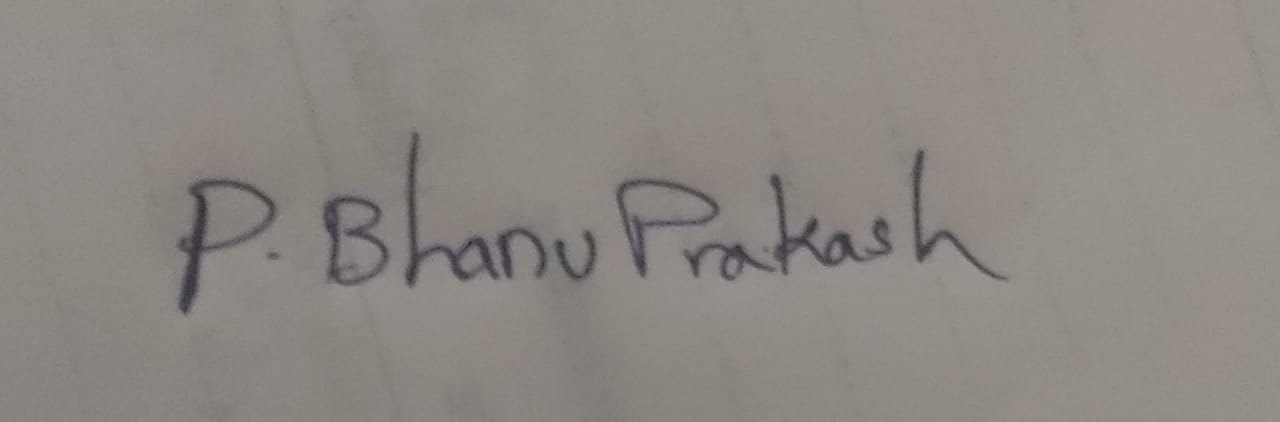 P. Bhanu Prakash